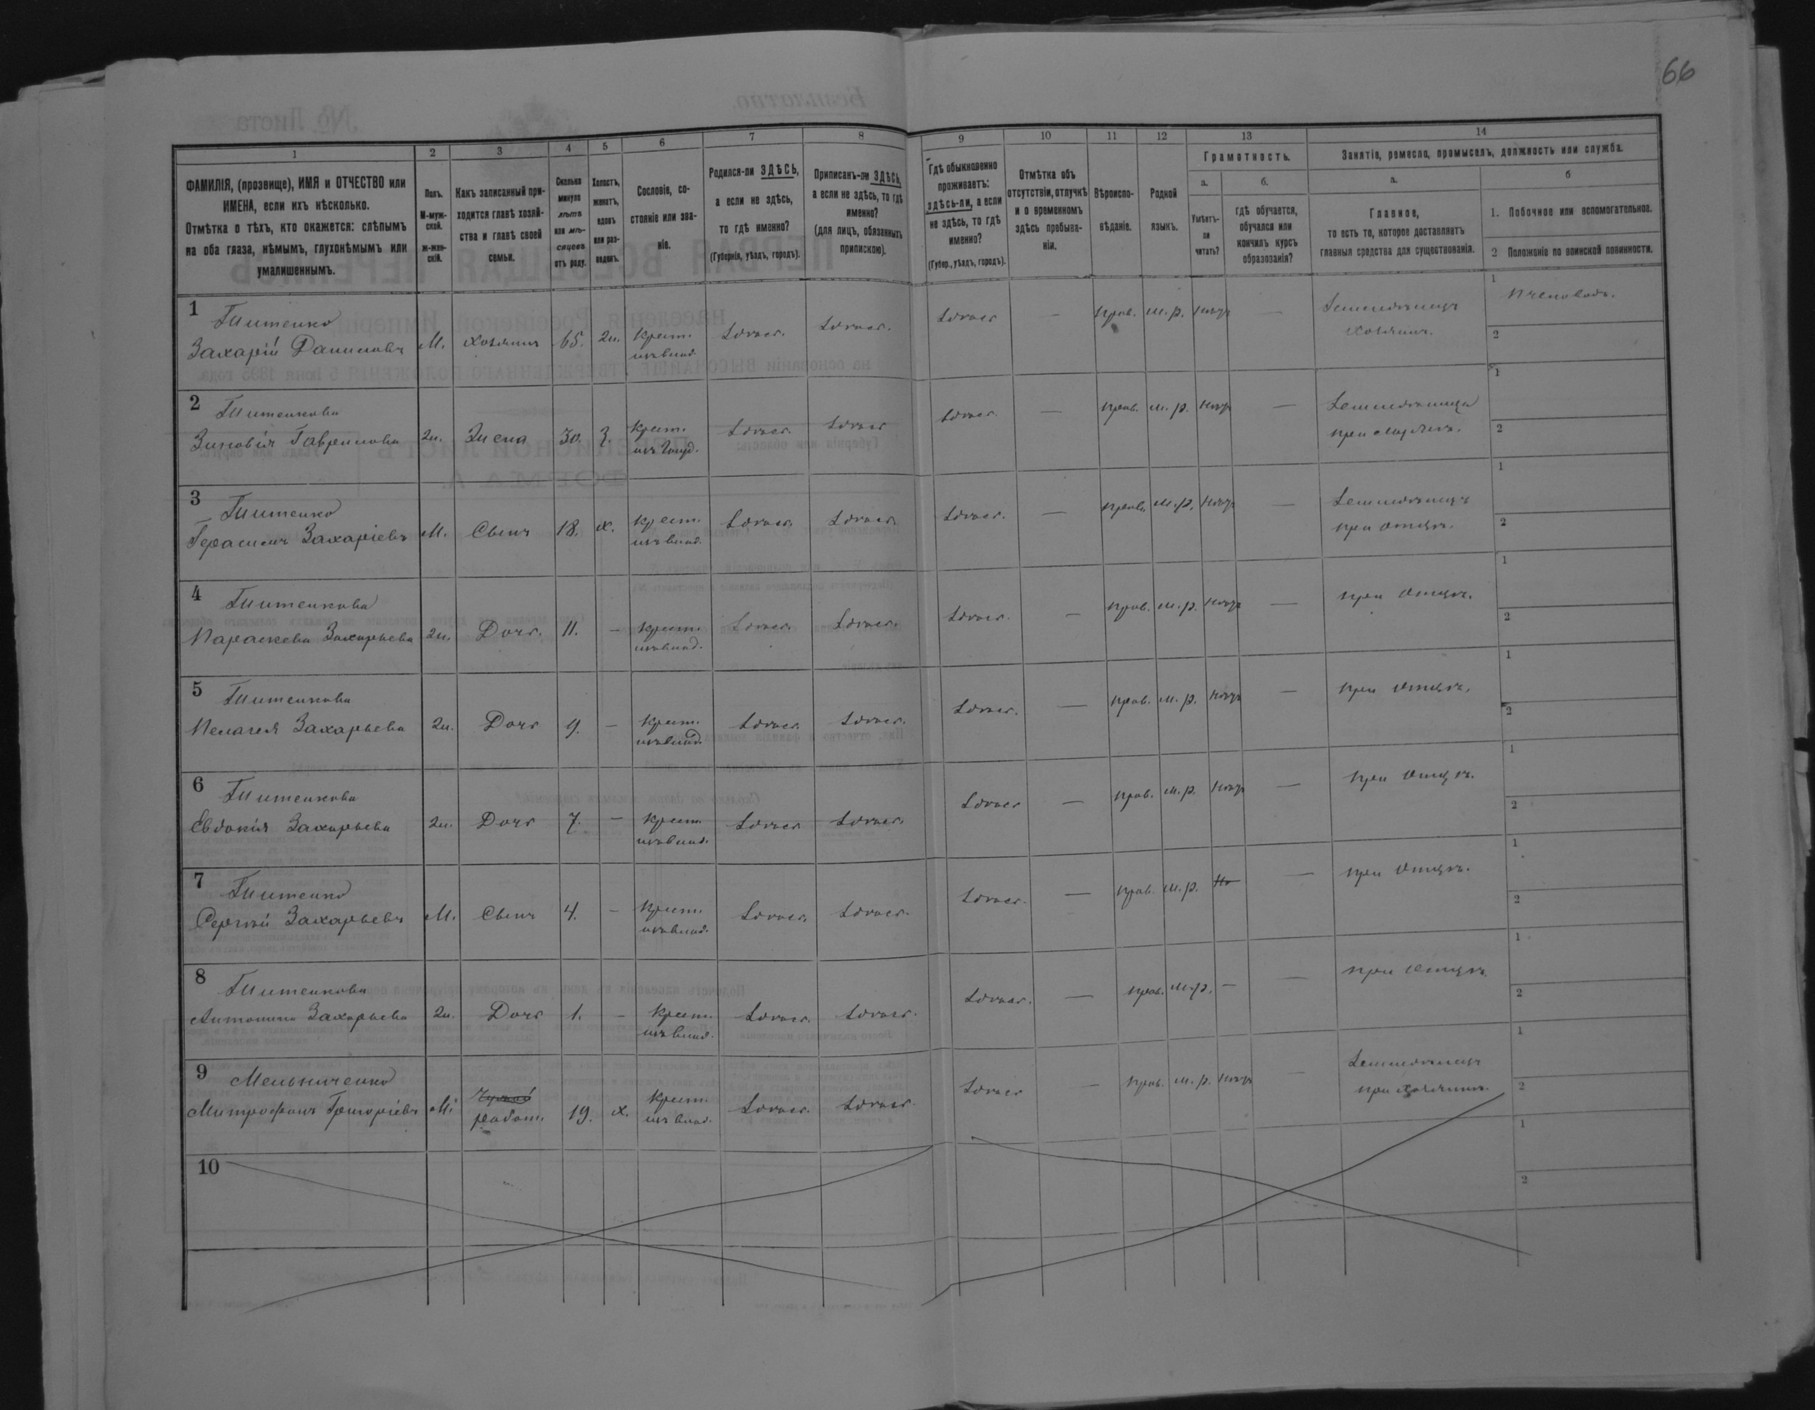 66
1
2
3
4
5
6
7
8
9
10
11
12
13
14
ФАМИЛІЯ, (прозвище), ИМЯ и ОТЧЕСТВО или
ИМЕНА, если ихъ нѣсколько.
Отмѣтка о тѣхъ, кто окажется: слѣпымъ
на оба глаза, нѣмымъ, глухонѣмымъ или
умалишеннымъ.
Полъ.
М-муж-
ской.
ж-жен-
скій.
Какъ записанный при-
ходится главѣ хозяй-
ства и главѣ своей
семьи.
Сколько
минуло
лѣтъ
или мѣ-
сяцевъ
отъ роду.
Холостъ,
женатъ,
вдовъ
или раз-
веденъ.
Сословіе, со-
стояніе или зва-
ніе.
Родился-ли ЗДѢСЬ,
а если не здѣсь,
то гдѣ именно?
(Губернія, уѣздъ, городъ).
Приписанъ-ли ЗДѢСЬ,
а если не здѣсь, то гдѣ
именно?
(для лицъ, обязанныхъ
припискою).
Гдѣ обыкновенно
проживаетъ:
здѣсь-ли, а если
не здѣсь, то гдѣ
именно?
(Губер., уѣздъ, городъ).
Отмѣтка объ
отсутствіи, отлучкѣ
и о временномъ
здѣсь пребыва-
ніи.
Вѣроиспо-
вѣданіе.
Родной
языкъ.
Грамотность.
а.
Умѣетъ-
ли
читать?
б.
гдѣ обучается,
обучался или
кончилъ курсъ
образованія?
Занятіе, ремесло, промыселъ, должность или служба.
а.
Главное,
то есть то, которое доставляетъ
главныя средства для существованія.
б
1. Побочное или вспомогательное.
2 Положеніе по воинской повинности.
1
Титенко
Захарій Даниловъ М. хозяинъ 65. ж. крест. изъ влад. здѣсь. здѣсь. здѣсь — прав. м.р. нѣтъ — Земледѣлецъ хозяинъ. 1 пчеловодъ. 2
2
Титенкова
Зиновія Гаврилова ж. Жена 30. з. крест. здѣсь здѣсь здѣсь — прав. м.р. нѣтъ — 1 2
3
Титенко
Герасимъ Захаріевъ М. Сынъ 18. х. крест. изъ влад. здѣсь здѣсь здѣсь. — прав. м.р. нѣтъ — Земледѣлецъ при отцѣ. 1 2
4
Титенкова
Параскева Захарьева ж. Дочь. 11. — крест. изъ влад. здѣсь. здѣсь. здѣсь. — прав. м.р. нѣтъ — при отцѣ. 1 2
5
Титенкова
Пелагея Захарьева ж. Дочь 9. — крест. изъ влад. здѣсь здѣсь. здѣсь. — прав. м.р. нѣтъ — при отцѣ. 1 2
6
Титенкова
Евдокія Захарьева ж. Дочь 7. — крест. изъ влад. здѣсь здѣсь. здѣсь — прав. м.р. нѣтъ — при отцѣ. 1 2
7
Титенко
Сергѣй Захарьевъ М. Сынъ 4. — крест. изъ влад. здѣсь здѣсь. здѣсь. — прав. м.р. — при отцѣ. 1 2
8
Титенкова
Антонина Захарьева ж. Дочь 1. — крест. изъ влад. здѣсь. здѣсь. здѣсь. — прав. м.р. — — при отцѣ 1 2
9
Мельниченко
Митрофанъ Григоріевъ М. работ. 19. х. крест. изъ влад. здѣсь. здѣсь здѣсь — прав. м.р. нѣтъ — Земледѣлецъ при хозяинѣ. 1 2
10
1
2